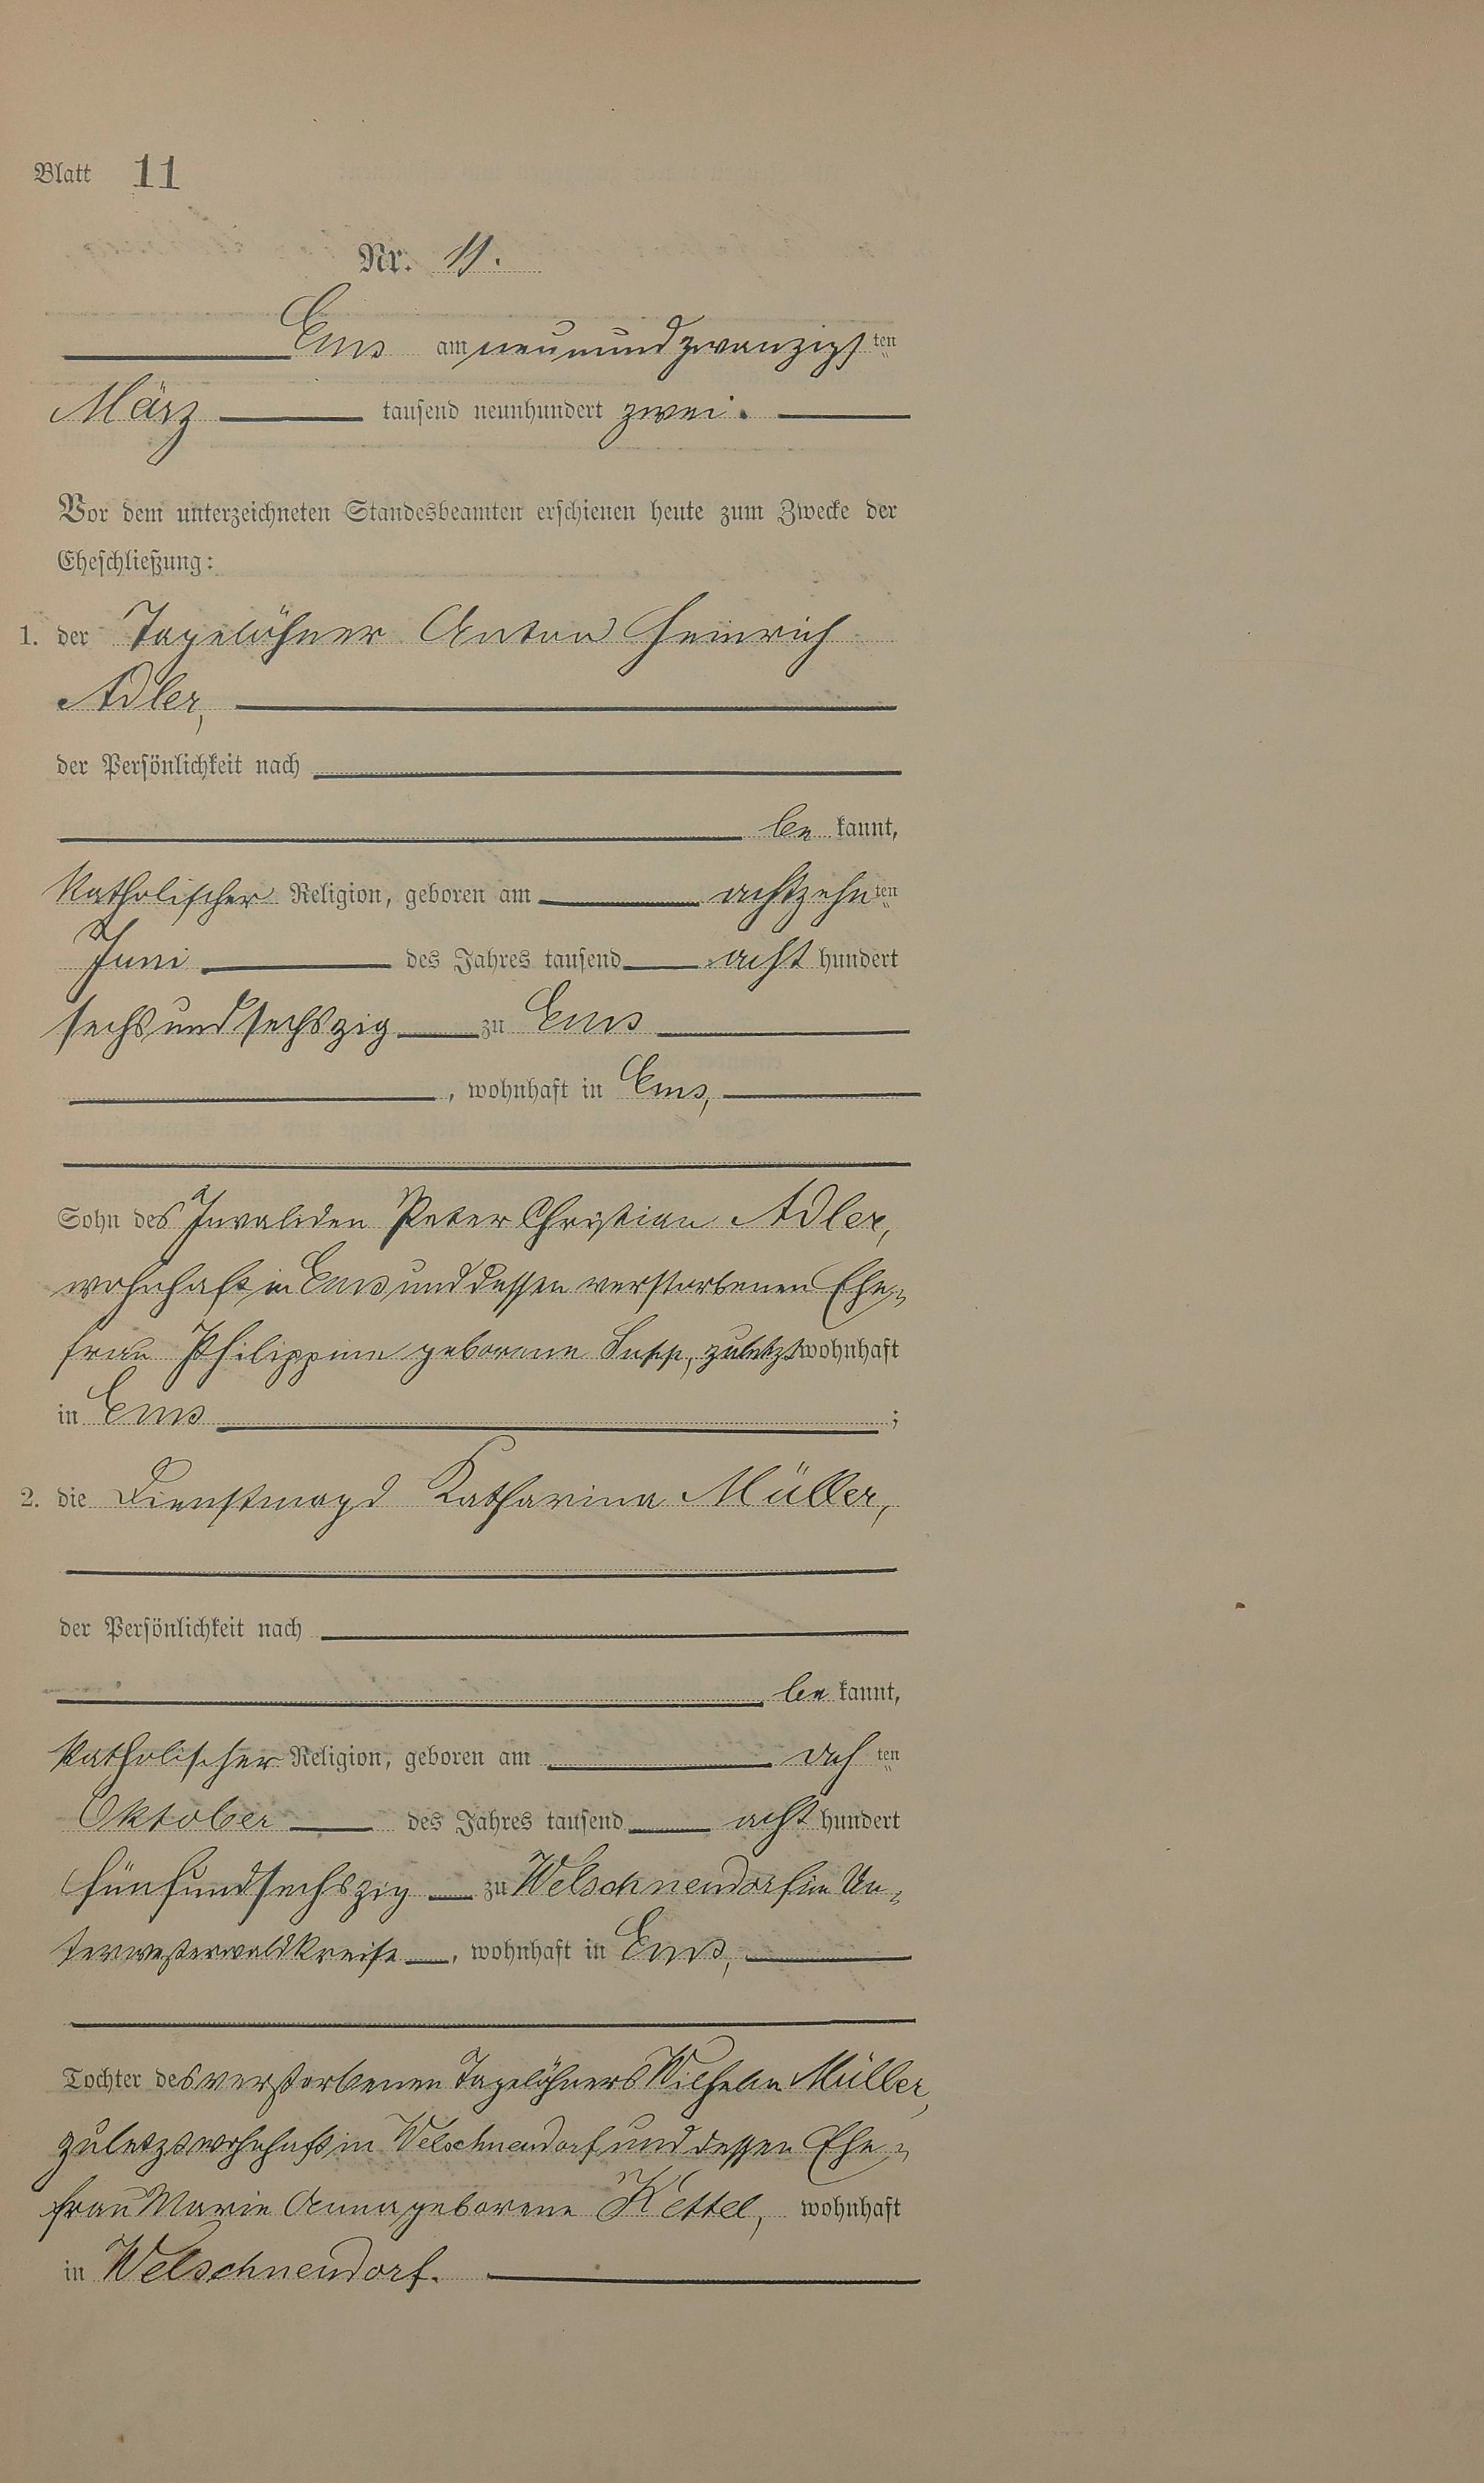 Blatt 11
Nr. 11.
Ems am neunundzwanzigsten
März tausend neunhundert zwei.
Vor dem unterzeichneten Standesbeamten erschienen heute zum Zwecke der
Eheschließung:
1. der Tagelöhner Anton Heinrich
Adler,
der Persönlichkeit nach
be kannt,
katholischer Religion, geboren am achtzehn ten
Juni des Jahres tausend acht hundert
sechsundsechszig zu Ems
, wohnhaft in Ems,
Sohn des Invaliden Peter Christian Adler,
wohnhaft in Ems und dessen verstorbenen Ehe-
frau Philippine geborene zuletzt wohnhaft
in Ems ;
2. die Dienstmagd Katharina Müller,
der Persönlichkeit nach
be kannt,
katholischer Religion, geboren am ach ten
Oktober des Jahres tausend acht hundert
fünfundsechszig zu Welschneudorf im Un-
terwesterwaldkreise, wohnhaft in Ems,
Tochter des verstorbenen Tagelöhners Wilhelm Müller,
zuletzt wohnhaft in Welschneudorf und dessen Ehe-
frau Marie Anna geborene Kettel, wohnhaft
in Welschneudorf.